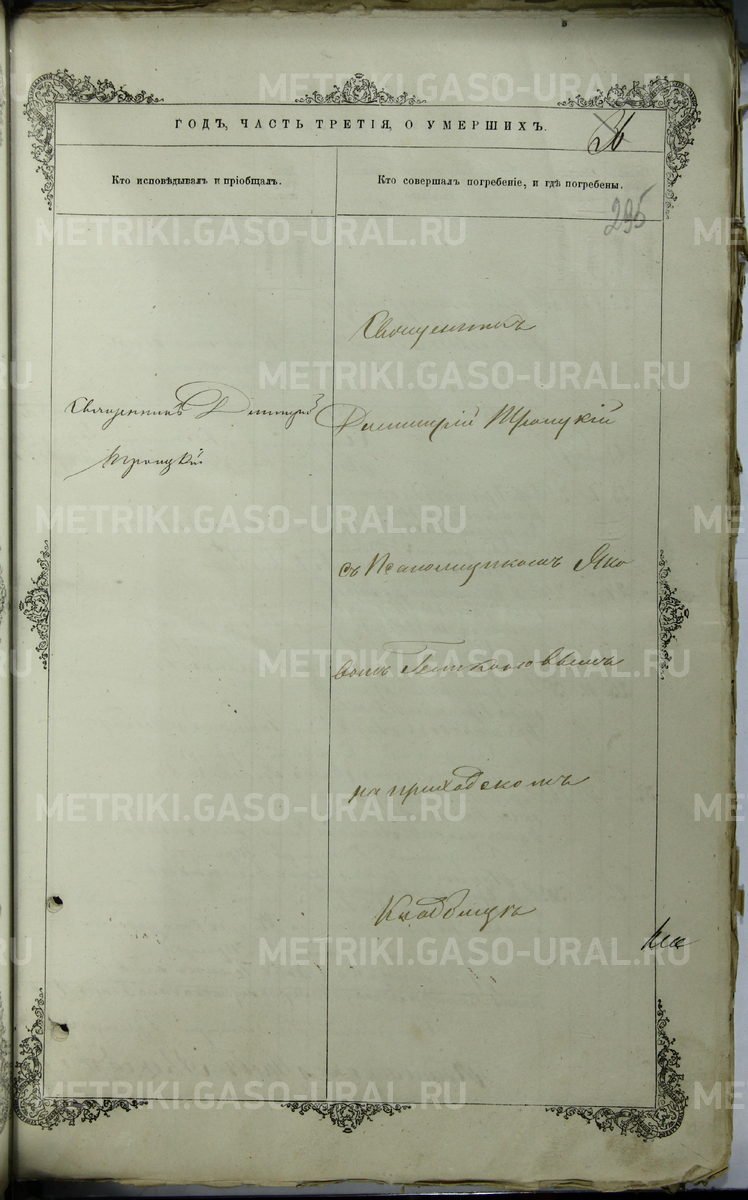 ГОДЪ, ЧАСТЬ ТРЕТІЯ, О УМЕРШИХЪ.
26
Кто исповѣдывалъ и пріобщалъ.
Кто совершалъ погребеніе, и гдѣ погребены.
295
Священникъ Димитрій
Троицкій
Священникъ
Димитрій Троицкій
съ Псаломщикомъ Яко
вомъ
на приходскомъ
Кладбищѣ
METRIKI.GASO-URAL.RU